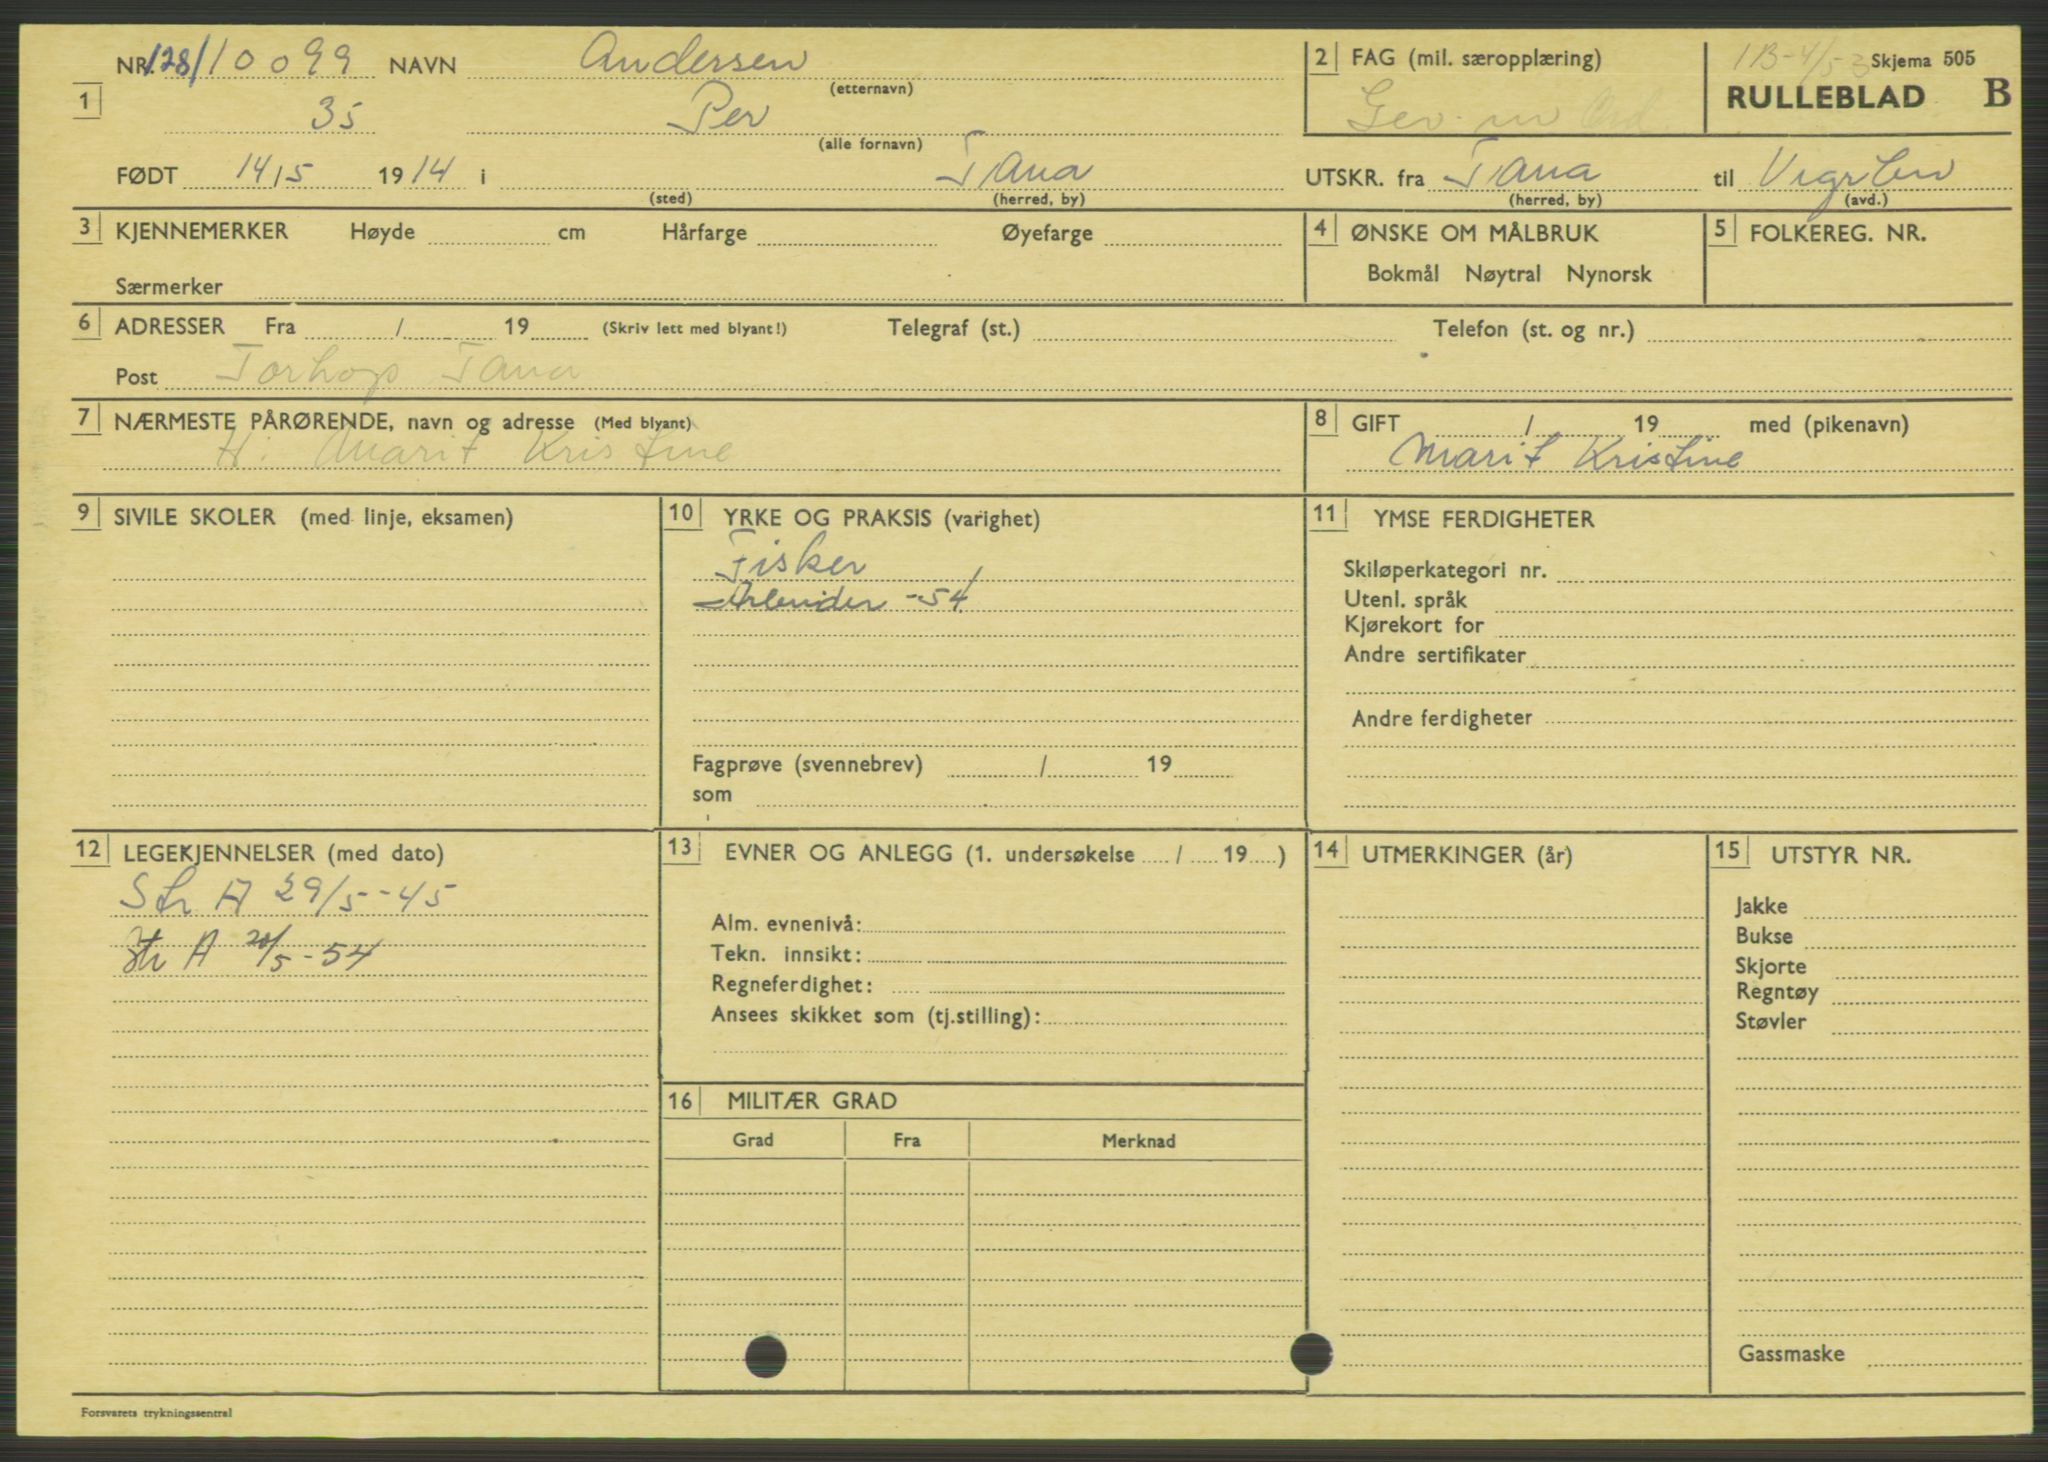 NR. 128/10099 NAVN Andersen
(etternavn)
1 35 Per
(alle fornavn)
FØDT 14/5 1914 i Tana
(sted) (herred, by)
2 FAG (mil. særopplæring)
Gev.
1B-4/53 Skjema 505
RULLEBLAD B
UTSKR. fra Tana til
(herred, by) (avd.)
3 KJENNEMERKER Høyde cm Hårfarge Øyefarge
Særmerker
4 ØNSKE OM MÅLBRUK
Bokmål Nøytral Nynorsk
5 FOLKEREG. NR.
6 ADRESSER Fra / 19 (Skriv lett med blyant!) Telegraf (st.) Telefon (st. og nr.)
Post Torhop Tana
7 NÆRMESTE PÅRØRENDE, navn og adresse (Med blyant)
H. Marit Kristine
8 GIFT / 19 med (pikenavn)
Marit Kristine
9 SIVILE SKOLER (med linje, eksamen)
10 YRKE OG PRAKSIS (varighet)
Fisker
Arbeider -54
Fagprøve (svennebrev) / 19
som
11 YMSE FERDIGHETER
Skiløperkategori nr.
Utenl. språk
Kjørekort for
Andre sertifikater
Andre ferdigheter
12 LEGEKJENNELSER (med dato)
Str A 29/5-45
Str A 20/5-54
13 EVNER OG ANLEGG (1. undersøkelse / 19 )
Alm. evnenivå:
Tekn. innsikt:
Regneferdighet:
Ansees skikket som (tj.stilling):
14 UTMERKINGER (år)
15 UTSTYR NR.
Jakke
Bukse
Skjorte
Regntøy
Støvler
Gassmaske
16 MILITÆR GRAD
Grad Fra Merknad
Forsvarets trykningssentral